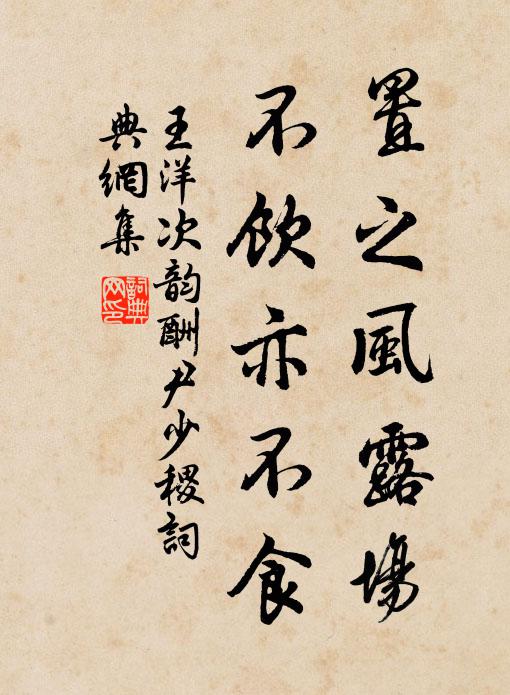 置之風露場
不飲亦不食
王洋次韵酬尹少稷詞
典網集
詞典網印